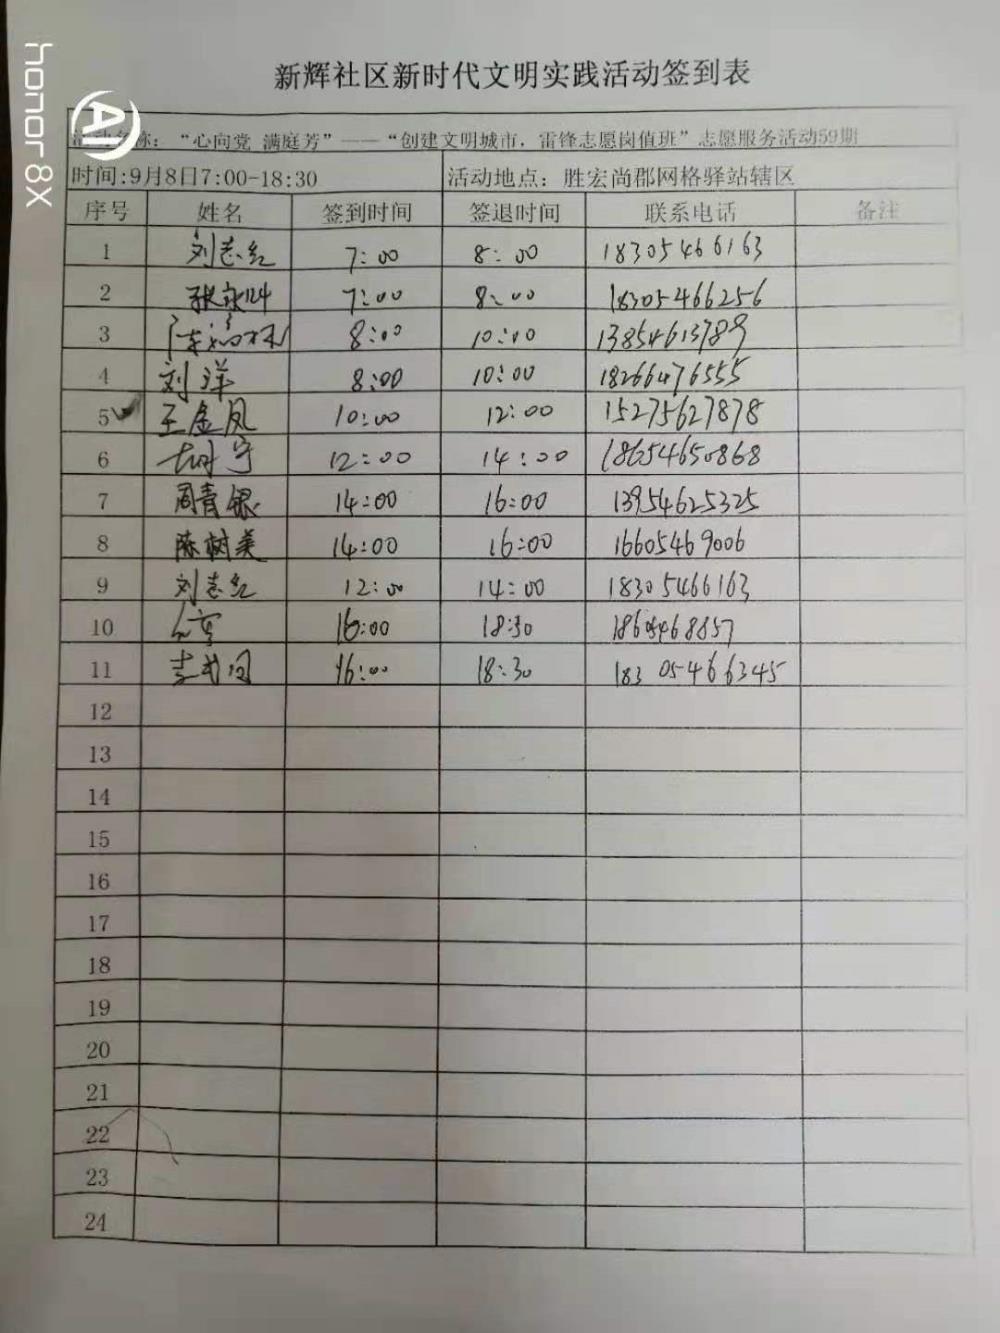 honor 8X
AI
新辉社区新时代文明实践活动签到表
活动名称：“心向党 满庭芳”——“创建文明城市，雷锋志愿岗值班”志愿服务活动59期
时间:9月8日7:00-18:30 活动地点：胜宏尚郡网格驿站辖区
序号 姓名 签到时间 签退时间 联系电话 备注
1 刘志红 7:00 8:00 18305466163
2 7:00 8:00 18305466256
3 8:00 10:00 13854613789
4 刘洋 8:00 10:00 18266476555
5 王金凤 10:00 12:00 15275627878
6 胡宁 12:00 14:00 18654650868
7 周青银 14:00 16:00 13954625325
8 陈树美 14:00 16:00 16605469006
9 刘志红 12:00 14:00 18305466163
10 16:00 18:30
11 16:00 18:30 18305466345
12
13
14
15
16
17
18
19
20
21
22
23
24